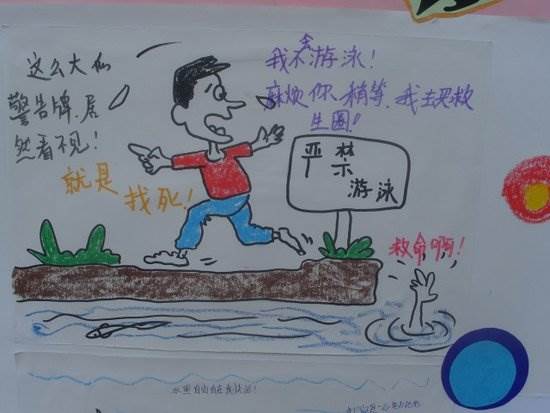 这么大个
警告牌,居
然看不见!
就是
找死!
我不会游泳!
麻烦你稍等.我去买救
生圈!
严禁
游泳
救命啊!